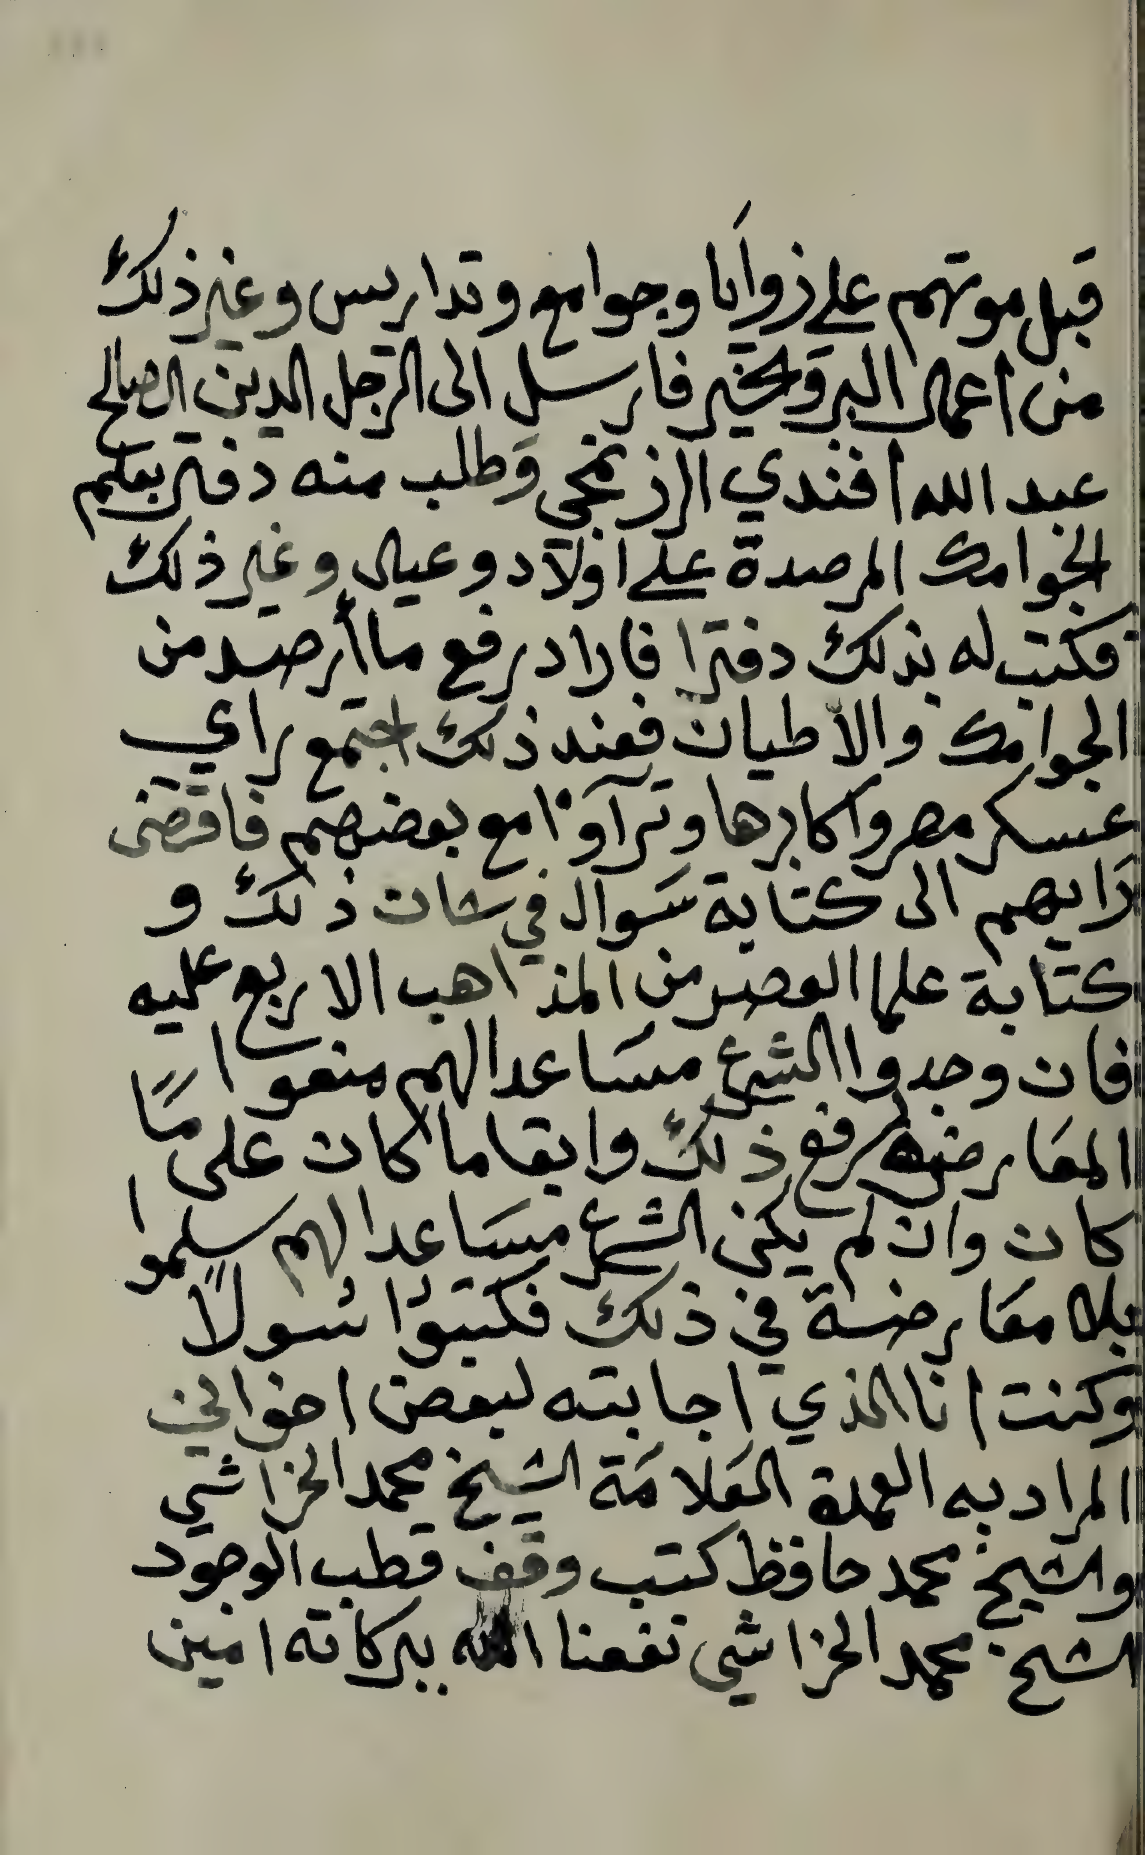 قبل موتهم على زوايا وجوامع وتداريس وغير ذلك
من اعمال البر والخير فارسل الى الرجل الدين الصالح
عبد الله افندي الرزنمجي وطلب منه دفتر بعلم
الجوامك المرصدة على اولاد وعيال وغير ذلك
فكتب له بذلك دفترا فاراد رفع ما أرصد من
الجوامك والاطيان فعند ذلك اجتمع راي
عسكر مصر واكابرها وترآوا مع بعضهم فاقتضى
رايهم الى كتابة سوال في شان ذلك و
كتابة علما العصر من المذاهب الاربع عليه
فان وجدوا الشرع مساعدا لهم منعوا
المعارضة لرفع ذلك وابقا ما كان على ما
كان وان لم يكن الشرع مساعدا لهم سلموا
بلا معارضة في ذلك فكتبوا سولاً
وكنت انا الذي اجابته لبعض اخواني
المراد به العمدة العلامة الشيخ محمد الخراشي
والشيخ محمد حافظ كتب وقف قطب الوجود
الشيخ محمد الخراشي نفعنا الله ببركاته امين